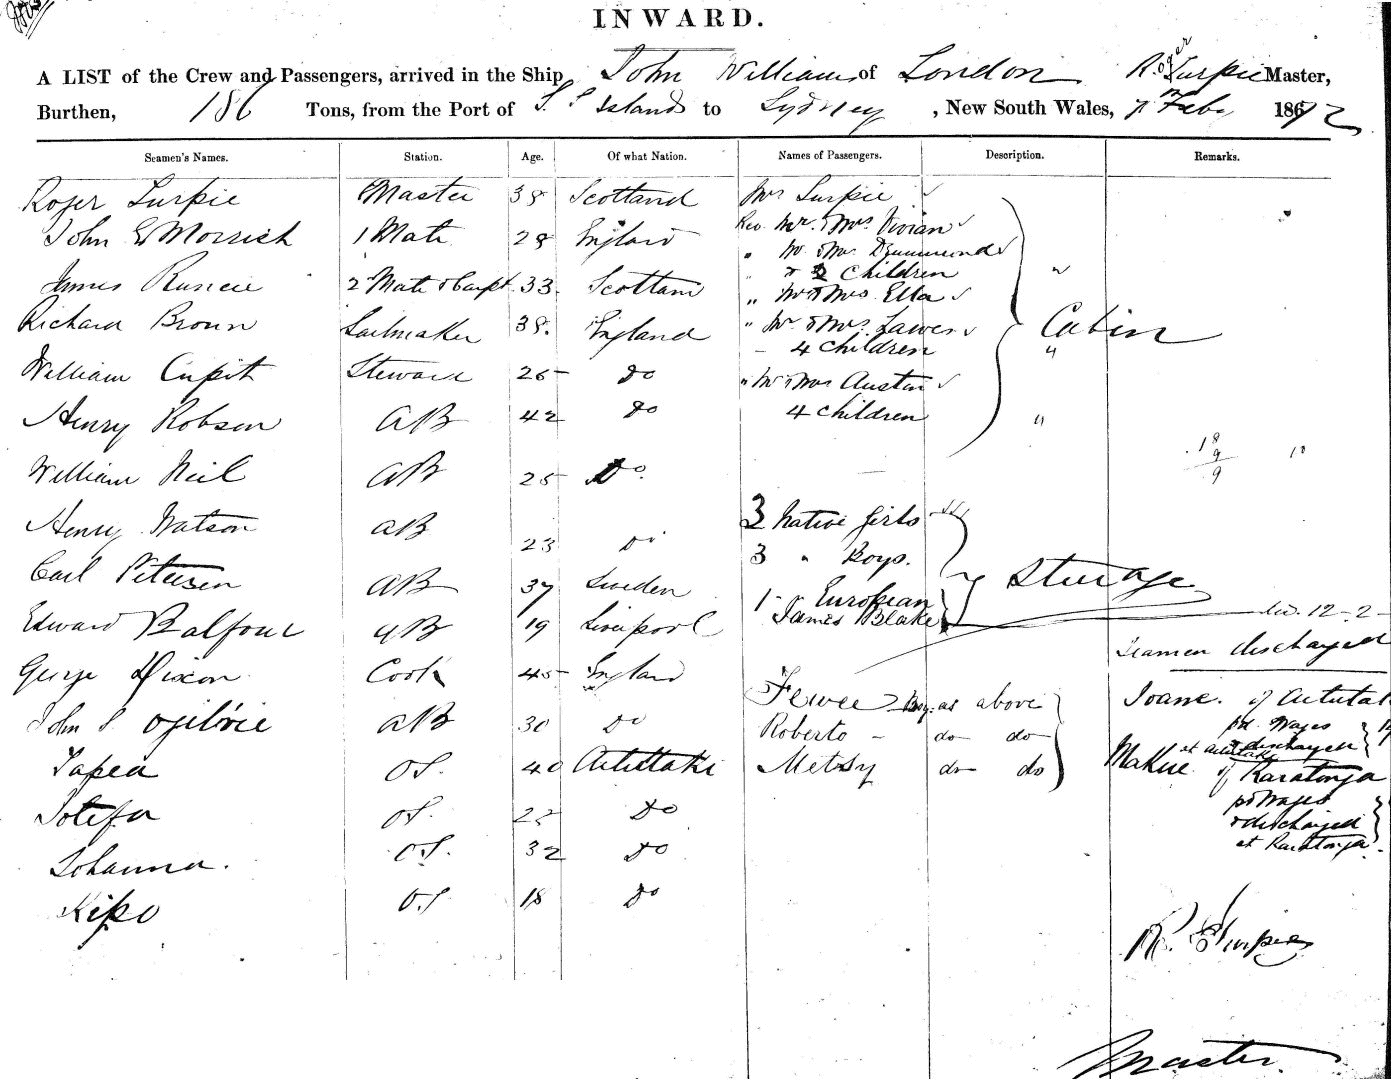 INWARD.
A LIST of the Crew and Passengers, arrived in the Ship John Williams of London Roger Turpie Master,
Burthen, 186 Tons, from the Port of S. S. Islands to Sydney, New South Wales, 7 Feby 1872
Seamen's Names. Station. Age. Of what Nation. Names of Passengers. Description. Remarks.
Roger Turpie Master 38 Scotland Mrs Turpie
Rev. Mr. & Mrs. Vivian
John E Morrish 1 Mate 28 England
" Mr. & Mrs. Drummond
" & 2 Children "
James Runcie 2 Mate & Carpt. 33. Scotland
" Mr & Mrs. Ella
Richard Brown Sailmaker 38. England " Mr. & Mrs. Lawes Cabin
4 Children "
William Cupit Steward 25 Do " Mr & Mrs Austin
Henry Robson AB 42 Do 4 Children "
18
9
9
William Neil AB 25 Do.
Henry Watson AB 23 Do 3 Native Girls
3 " Boys.
Carl Petersen AB 37 Sweden 1 - European Sturage
James Blake
12-2-
Edward Balfour AB 19 Liverpool
Seamen discharged
George Dixon Cook 45 England
Fewee Boy. as above Ioane. of Aitutaki
John S. Ogilvie AB 30 Do Roberto - do do pd. Wages
& discharged
at Aitutaki
Tapea OS. 40 Aitutaki Metsy do do Makue of Raratonga
Totefa OS. 25 Do pd Wages
& discharged
at Raratonga.
Iohanna. OS. 32 Do
Kipo OS 18 Do
R. Turpie
Master.